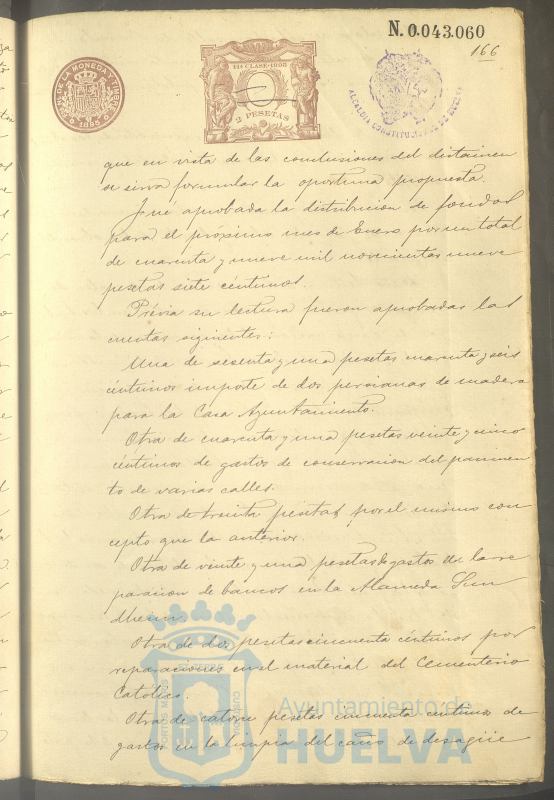 N. 0.043.060
166
11ª CLASE-1895
2 PESETAS
1895
ALCALDIA CONSTITUCIONAL DE HUELVA
que en vista de las conclusiones del dictamen
se sirva formular la oportuna propuesta.
Fué aprobada la distribucion de fondos
para el próximo mes de Enero por un total
de cuarenta y nueve mil novecientas nueve
pesetas siete céntimos.
Prévia su lectura fueron aprobadas las
cuentas siginentes:
Una de sesenta y una pesetas cuarenta y seis
céntimos importe de dos persianas de madera
para la Casa Ayuntamiento.
Otra de cuarenta y una pesetas veinte y cinco
céntimos de gastos de conservacion del pavimen
to de varias calles.
Otra de treinta pesetas por el mismo con
cepto que la anterior.
Otra de veinte y una pesetas de gastos de la re
paracion de bancos en la Alameda Sun
dheim.
Otra de dos pesetas cincuenta céntimos por
reparaciones en el material del Cementerio
Católico.
Otra de catorce pesetas cincuenta centimos de
gastos en la limpia del caño de desagüe
Ayuntamiento de
HUELVA